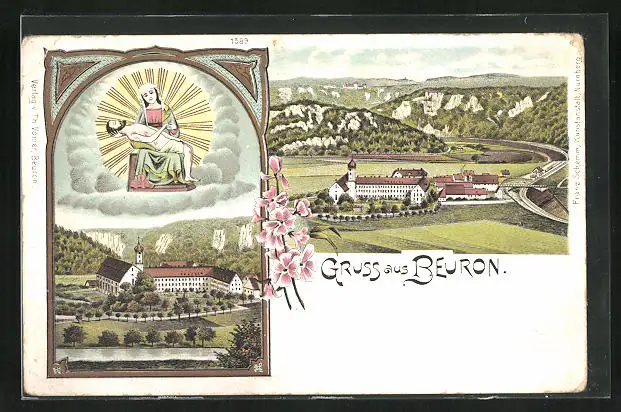 1389
Verlag v. Th. Wörner, Beuron
Franz Schemm, Kunstanstalt, Nürnberg
GRUSS aus BEURON.